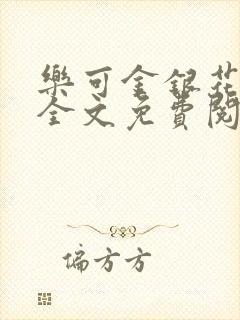 樂可金銀花
全文免費閱
偏方方